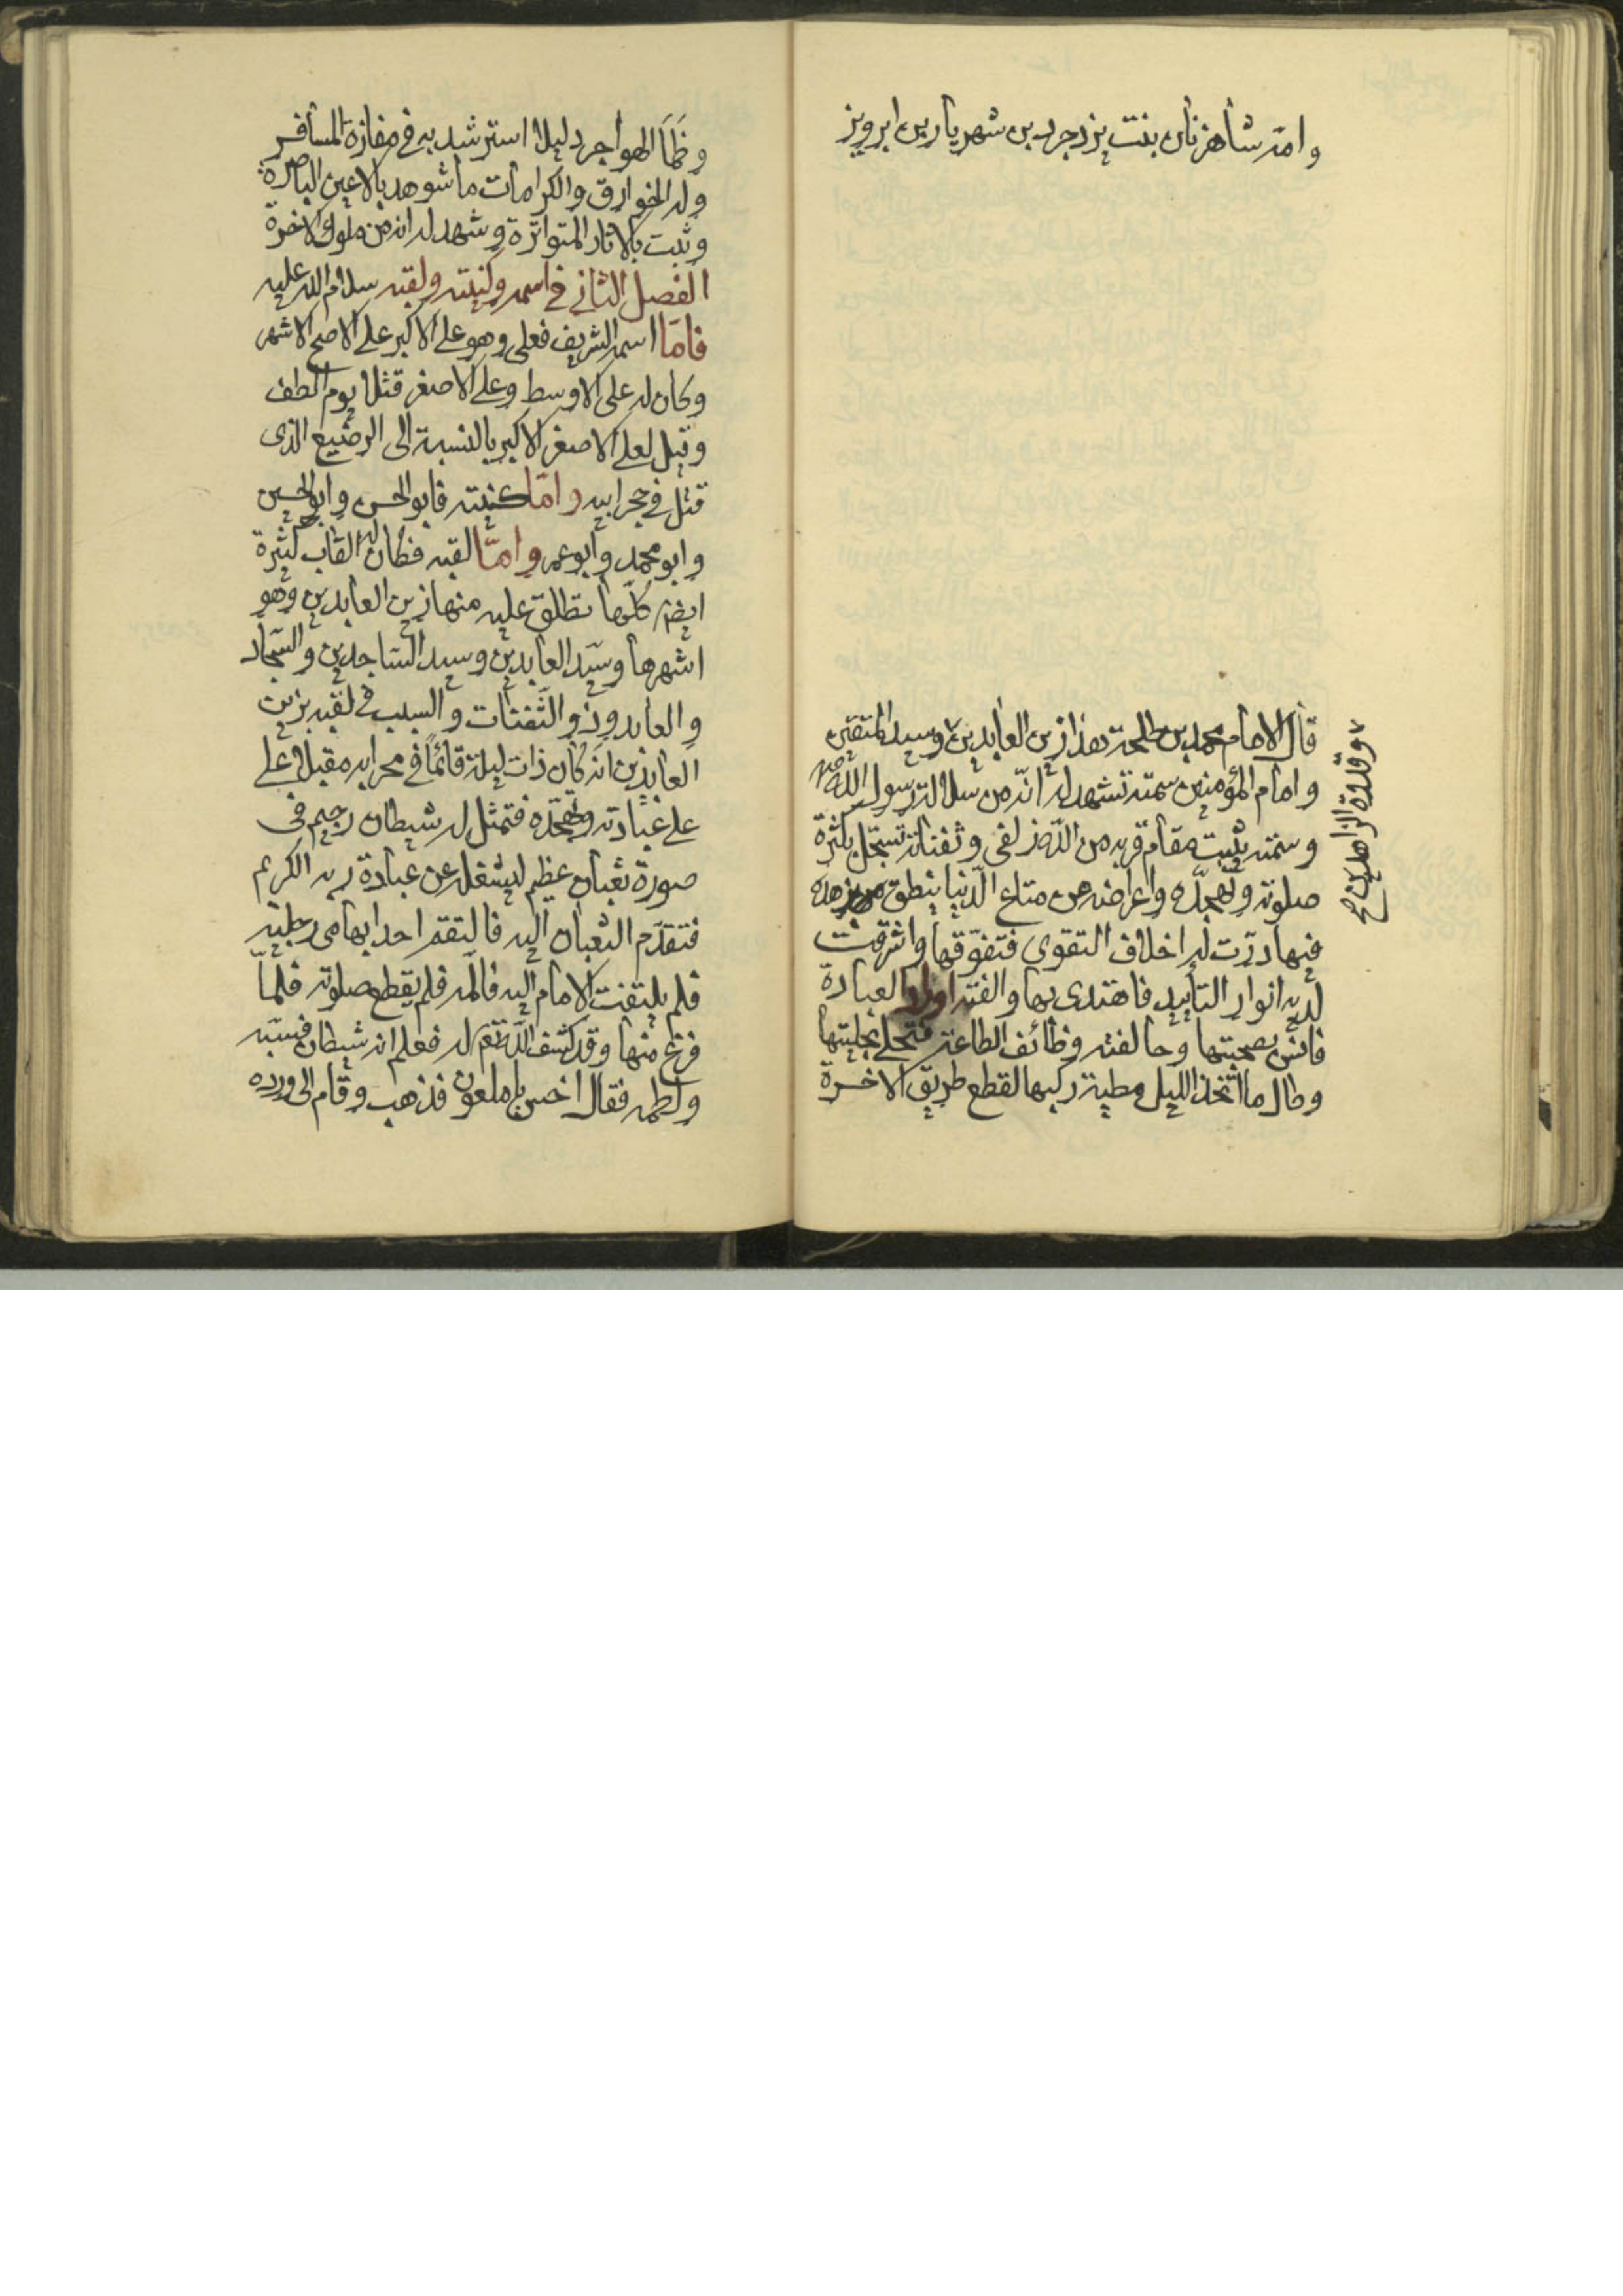 وامه شاهزنان بنت يزدجرد بن شهريار بن ابرويز
قال الامام محمد بن طلحة هذا زين العابدين وسيد المتقين
وقدوة الزاهدين صح
وامام المؤمنين سمته تشهد له انّه من سلالة رسول الله
وسمته يثبت مقام قربه من الله زلفى وثفناته تسجّل بكثرة
صلوته وتهجّده واعراضه عن متاع الدّنيا ينطق بزهده
فيها درّت له اخلاف التقوى فتفوّقها واشرقت
لديه انوار التأييد فاهتدى بها والفته اوراد العبادة
فانس بصحبتها وحالفته وظائف الطاعة فتحلى بحليتها
وطال ما اتّخذ الليل مطية ركبها لقطع طريق الاخرة
وظمأ الهواجر دليلا استرشد به في مفازة المسافر
وله الخوارق والكرامات ما شوهد بالاعين الباصرة
وثبت بالاثار المتواترة وشهد له انه من ملوك الاخرة
الفصل الثاني في اسمه وكنيته ولقبه سلام الله عليه
فامّا اسمه الشريف فعلي وهو على الاكبر على الاصح الاشهر
وكان له على الاوسط وعلى الاصغر قتلا يوم الطف
وقيل لعلى الاصغر الاكبر بالنسبة الى الرضيع الذى
قتل في حجر ابيه وامّا كنيته فابو الحسن وابو الحسين
وابو محمد وابو عمر وامّا لقبه فكان له القاب كثيرة
ايضم كلّها تطلق عليه منها زين العابدين وهو
اشهرها وسيّد العابدين وسيد الساجدين والسجّاد
والعابد وذو الثّفنات والسبب في لقبه بزين
العابدين انه كان ذات ليلة قائماً في محرابه مقبلا على
على عبادته وتهجّده فتمثل له شيطان رجيم في
صورة ثعبان عظيم ليشغله عن عبادة ربه الكريم
فتقدّم الثعبان اليه فالتقم احد ابهامى رجليه
فلم يلتفت الامام اليه فالمه فلم يقطع صلوته فلمّا
فرغ منها وقد كشف الله تعم له فعلم انه شيطان فسبّه
ولطمه فقال اخس يا ملعون فذهب وقام الى ورده